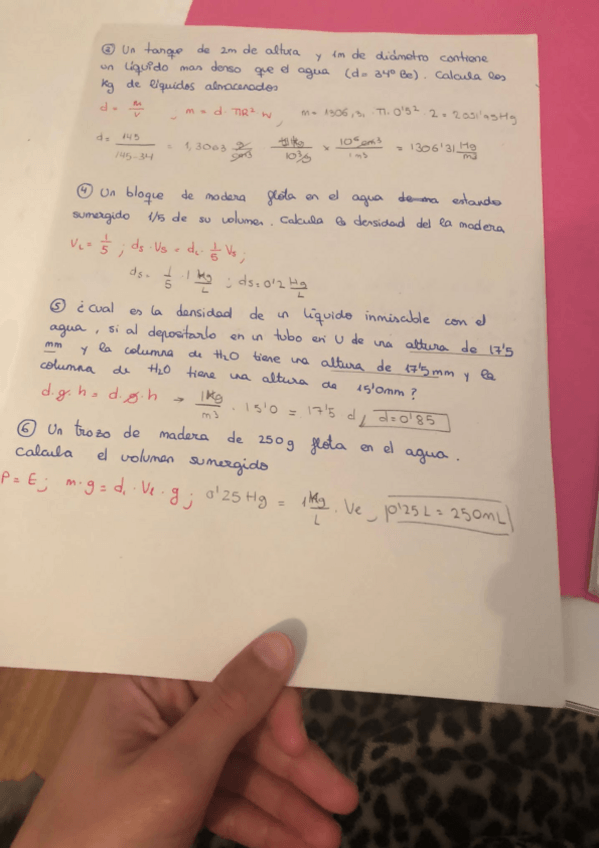 ② Un tanque de 2m de altura y 1m de diámetro contiene
un líquido mas denso que el agua (d = 34º Be). Calcula los
Kg de líquidos almacenados
d = m/V ; m = d · πR² h, m = 1306,31 · π · 0'5² · 2 = 2051'95 Kg
d = 145/145-34 = 1,3063 g/cm3 1Kg/10³g × 10⁶cm3/1m3 = 1306'31 Kg/m3
④ Un bloque de madera flota en el agua estando
sumergido 1/5 de su volumen. Calcula la densidad del la madera
VL = 1/5 ; ds · Vs = dL · 1/5 Vs ;
ds = 1/5 · 1 Kg/L ; ds = 0'2 Kg/L
⑤ ¿Cual es la densidad de un líquido inmiscable con el
agua, si al depositarlo en un tubo en U de una altura de 17'5
mm y la columna de H2O tiene una altura de 17'5 mm y la
columna de H2O tiene una altura de 15'0mm?
d · g · h = d · g · h → 1Kg/m3 · 15'0 = 17'5 d / d = 0'85
⑥ Un trozo de madera de 250g flota en el agua.
Calcula el volumen sumergido
P = E ; m · g = dL · VL · g ; 0'25 Kg = 1 Kg/L · Ve, 0'25 L = 250mL